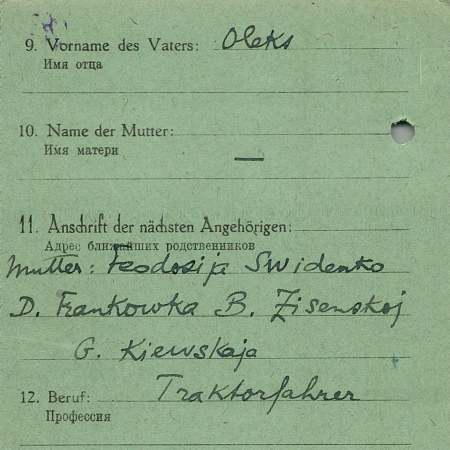 9. Vorname des Vaters: Oleks
Имя отца
10. Name der Mutter: —
Имя матери
11. Anschrift der nächsten Angehörigen:
Адрес ближайших родственников
Mutter: Feodosija Swidenko
D. Frankowka B. Zisenskoj
G. Kiewskaja
12. Beruf: Traktorfahrer
Профессия